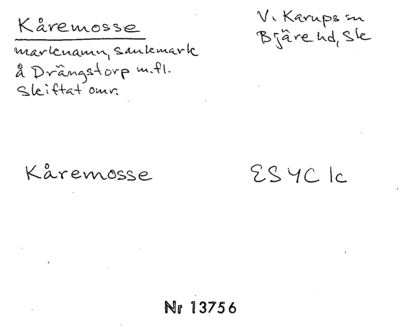 Kåremosse
marknamn, sankmark
å Drängstorp m.fl.
Skiftat omr.
V. Karups sn
Bjäre hd, Sk
Kåremosse
ES4C 1c
Nr 13756